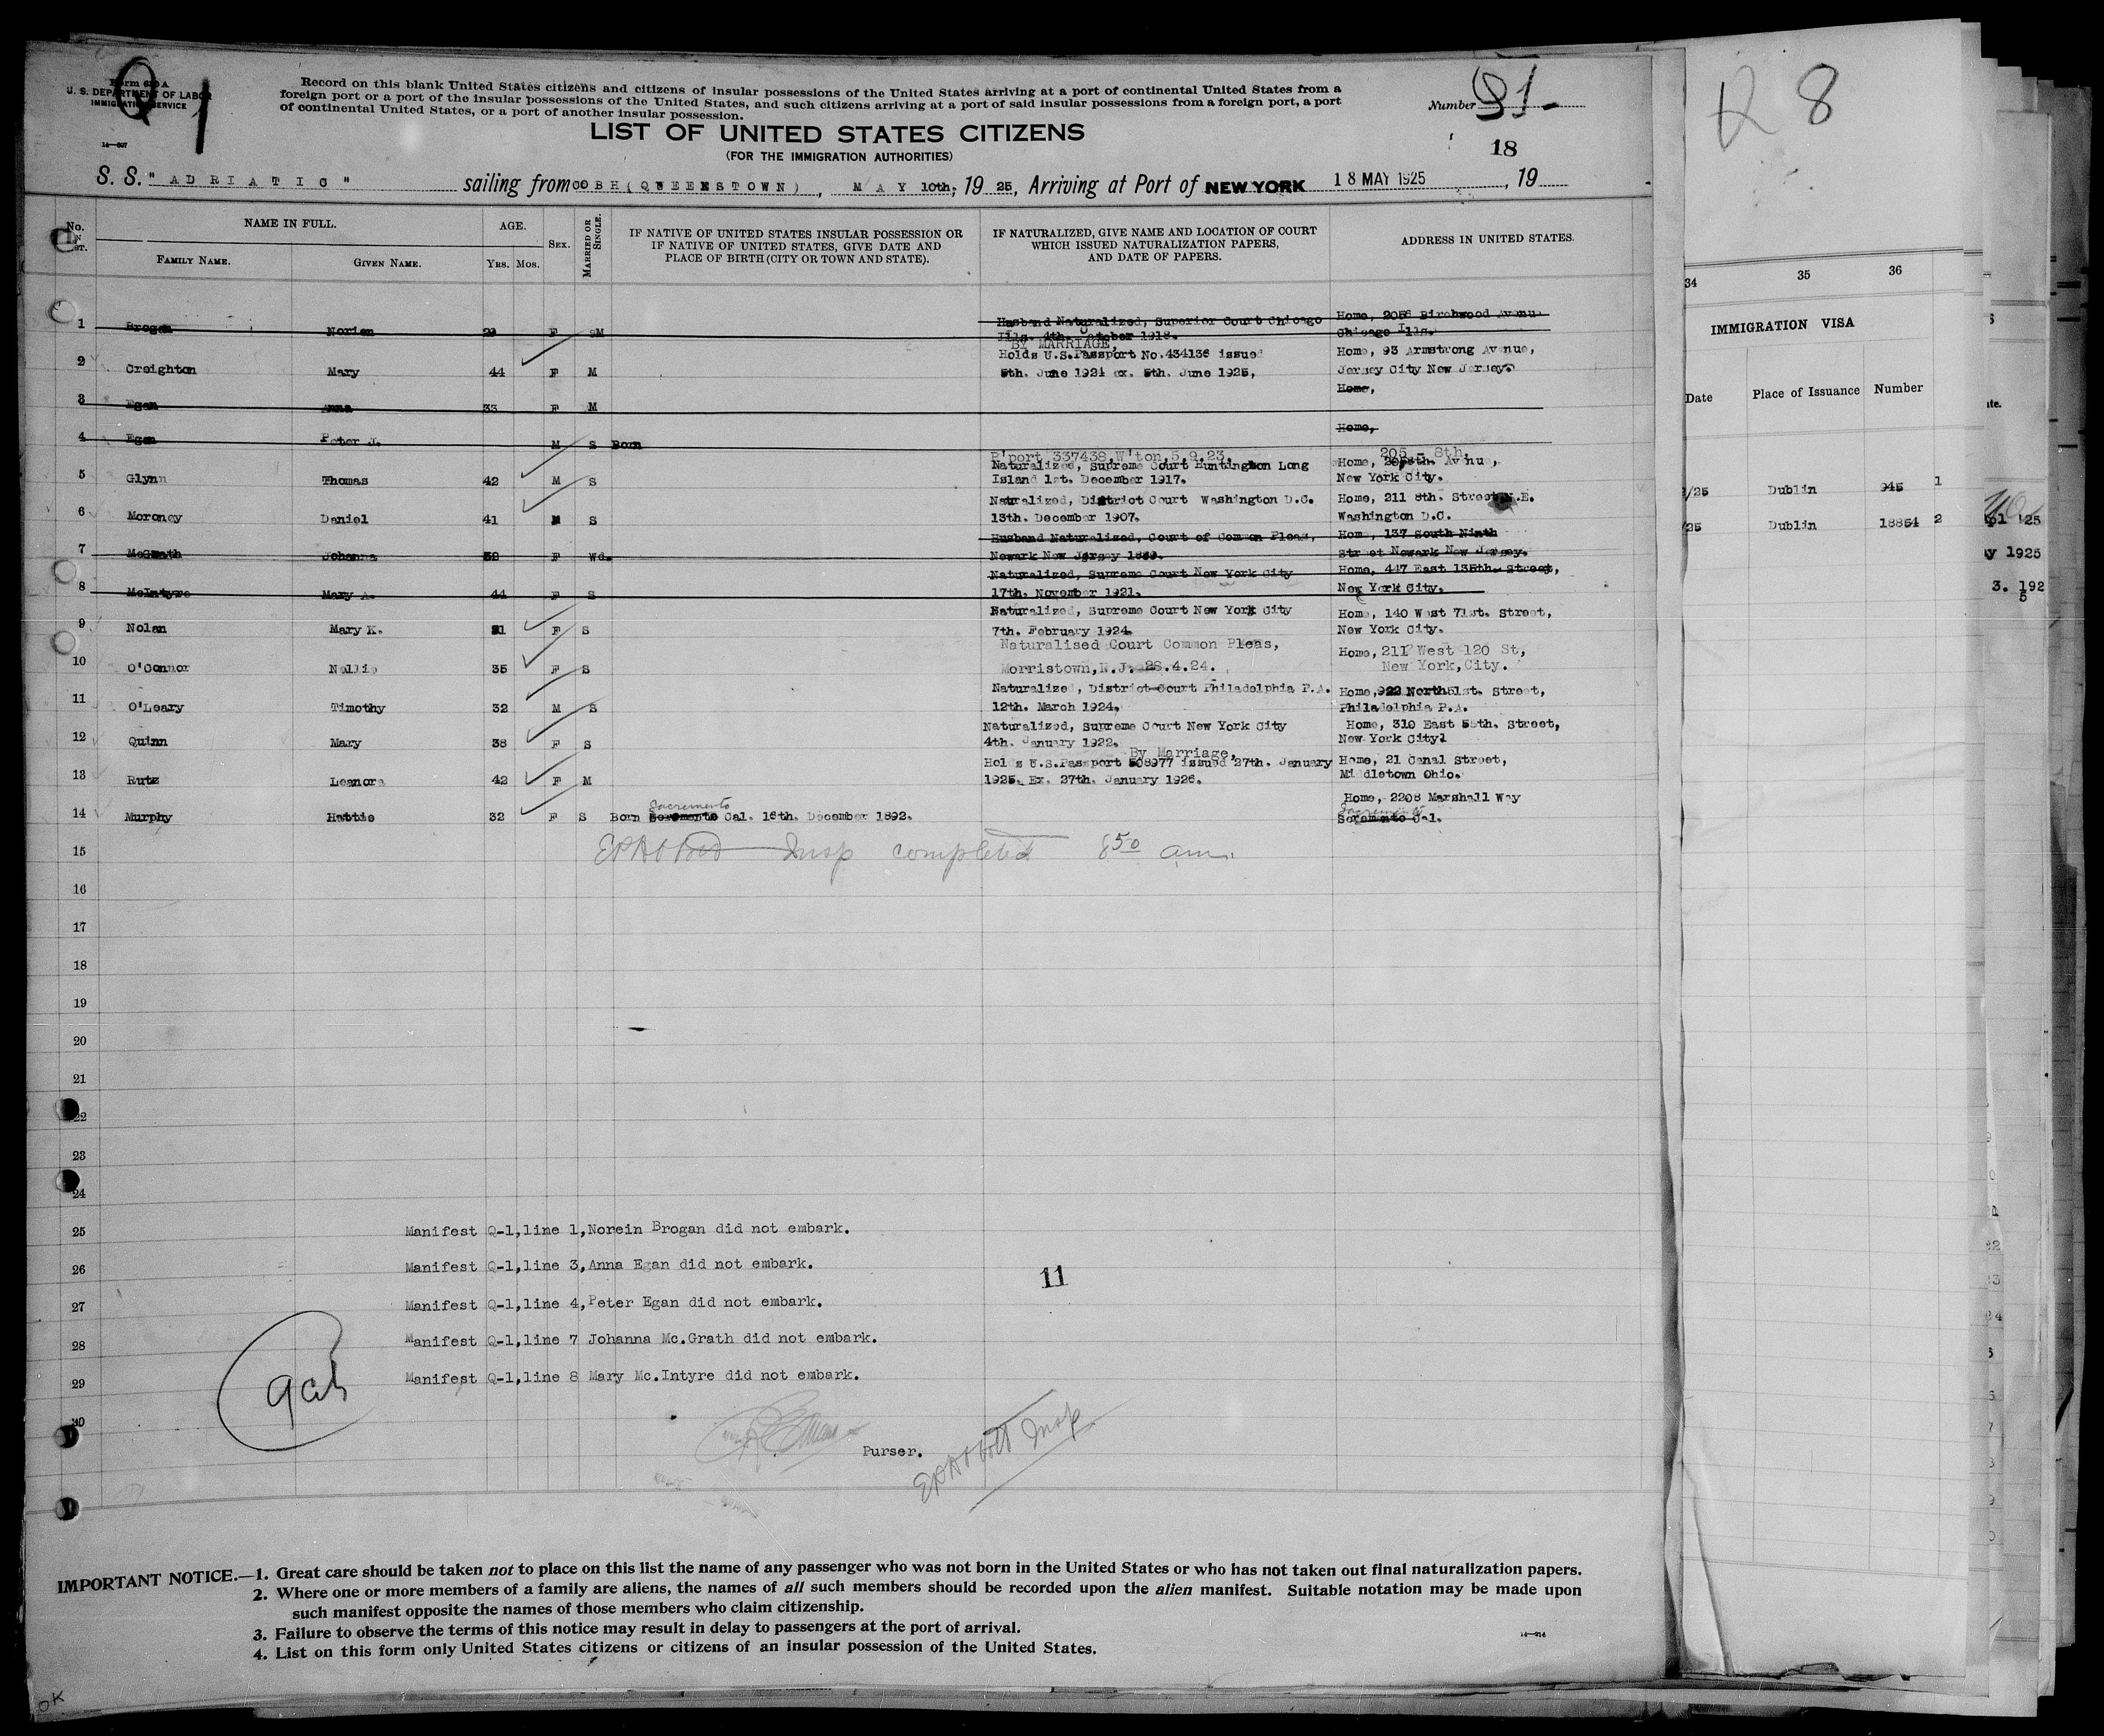 Q 1
Form 630 A
U. S. DEPARTMENT OF LABOR
IMMIGRATION SERVICE
14—607
Record on this blank United States citizens and citizens of insular possessions of the United States arriving at a port of continental United States from a
foreign port or a port of the insular possessions of the United States, and such citizens arriving at a port of said insular possessions from a foreign port, a port
of continental United States, or a port of another insular possession.
Number
LIST OF UNITED STATES CITIZENS
(FOR THE IMMIGRATION AUTHORITIES)
18
S. S. "ADRIATIC" sailing from COBH (QUEENSTOWN), MAY 10th; 19 25, Arriving at Port of NEW YORK 18 MAY 1925, 19
No. IN LIST. NAME IN FULL. AGE. SEX. MARRIED OR SINGLE. IF NATIVE OF UNITED STATES INSULAR POSSESSION OR IF NATIVE OF UNITED STATES, GIVE DATE AND PLACE OF BIRTH (CITY OR TOWN AND STATE). IF NATURALIZED, GIVE NAME AND LOCATION OF COURT WHICH ISSUED NATURALIZATION PAPERS, AND DATE OF PAPERS. ADDRESS IN UNITED STATES.
FAMILY NAME. GIVEN NAME. YRS. MOS.
Husband Naturalized, Superior Court Chicago Home, 2056 Birchwood Avenue
1 Brogan Norien 29 F M Ills. 4th. October 1918. Chicago Ills.
By MARRIAGE,
Holds U.S.Passport No.434136 issued Home, 93 Armstrong Avenue,
2 Creighton Mary 44 F M 5th. June 1924 ex. 5th. June 1925, Jersey City New Jersey.
Home,
3 Egan Anna 33 F M
Home,
4 Egan Peter J. M S Born
P'port 337438,W'ton,5.9.23, 205 - 8th,
Naturalized, Supreme Court Huntington Long Home, Avenue,
5 Glynn Thomas 42 M S Island 1st. December 1917. New York City.
Naturalized, District Court Washington D.C. Home, 211 8th. Street N.E.
6 Moroney Daniel 41 M S 13th. December 1907. Washington D.C.
Husband Naturalized, Court of Common Pleas, Home, 137 South Ninth
7 McGrath Johanna F Wd. Newark New Jersey Street Newark New Jersey.
Naturalized, Supreme Court New York City Home, 447 East 135th. Street,
8 McIntyre Mary A. 44 F S 17th. November 1921. New York City.
Naturalized, Supreme Court New York City Home, 140 West 71st. Street,
9 Nolan Mary K. F S 7th. February 1924. New York City.
Naturalised Court Common Pleas, Home, 211 West 120 St,
10 O'Connor Nellie 35 F S Morristown,N.J. 28.4.24. New York,City.
Naturalized, District Court Philadelphia P.A. Home, 922 North 51st. Street,
11 O'Leary Timothy 32 M S 12th. March 1924, Philadelphia P.A.
Naturalized, Supreme Court New York City Home, 310 East 55th. Street,
12 Quinn Mary 38 F S 4th. January 1922. New York City.
By Marriage,
Holds U.S.Passport 508977 issued 27th. January Home, 21 Canal Street,
13 Rutz Leanora 42 F M 1925. Ex. 27th. January 1926. Middletown Ohio.
Sacremento Home, 2208 Marshall Way
14 Murphy Hattie 32 F S Born Soremento Cal. 16th. December 1892. Soremento Cal.
15 Insp completed 8 50 am.
16
17
18
19
20
21
22
23
24
25 Manifest Q-1,line 1,Norein Brogan did not embark.
26 Manifest Q-1,line 3,Anna Egan did not embark.
11
27 Manifest Q-1,line 4,Peter Egan did not embark.
28 Manifest Q-1,line 7 Johanna Mc.Grath did not embark.
29 Manifest Q-1,line 8 Mary Mc.Intyre did not embark.
30
Purser.
Insp
IMPORTANT NOTICE.—1. Great care should be taken not to place on this list the name of any passenger who was not born in the United States or who has not taken out final naturalization papers.
2. Where one or more members of a family are aliens, the names of all such members should be recorded upon the alien manifest. Suitable notation may be made upon
such manifest opposite the names of those members who claim citizenship.
3. Failure to observe the terms of this notice may result in delay to passengers at the port of arrival.
4. List on this form only United States citizens or citizens of an insular possession of the United States.
OK
R 8
34 35 36
IMMIGRATION VISA
Date Place of Issuance Number
/25 Dublin 945 1
/25 Dublin 18854 2
'25
y 1925
3. 192
5